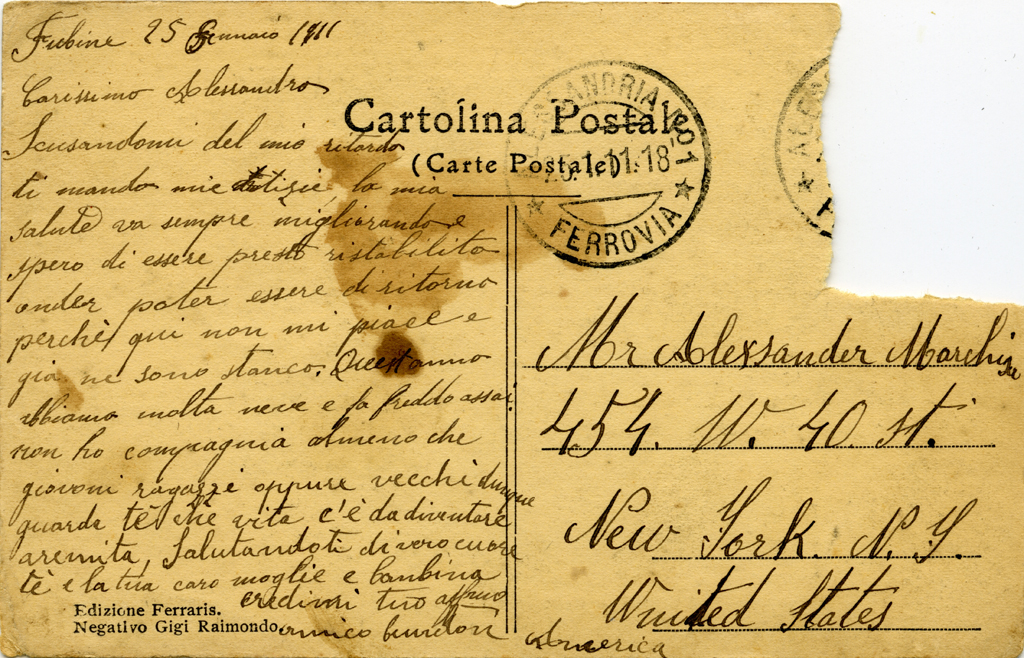 Fubine 25 Gennaio 1911
Carissimo Alessandro
Scusandomi del mio ritardo
ti mando mie notizie la mia
salute va sempre migliorando e
spero di essere presto ristabilito
onder poter essere di ritorno
perchè qui non mi piace e
già ne sono stanco. Quest anno
abbiamo molta neve e fa freddo assai
non ho compagnia almeno che
giovani ragazze oppure vecchi dunque
guarda tè che vita c'è da diventare
aremita, Salutandoti di vero cuore
tè e la tua cara moglie e banbina
credimi tuo affmo
amico
Edizione Ferraris.
Negativo Gigi Raimondo.
Cartolina Postale
(Carte Postale)
ALESSANDRIA
1.11.18
FERROVIA
Mr Alexsander Marchi
454. W. 40 st.
New York. N. Y.
Wnited States
America